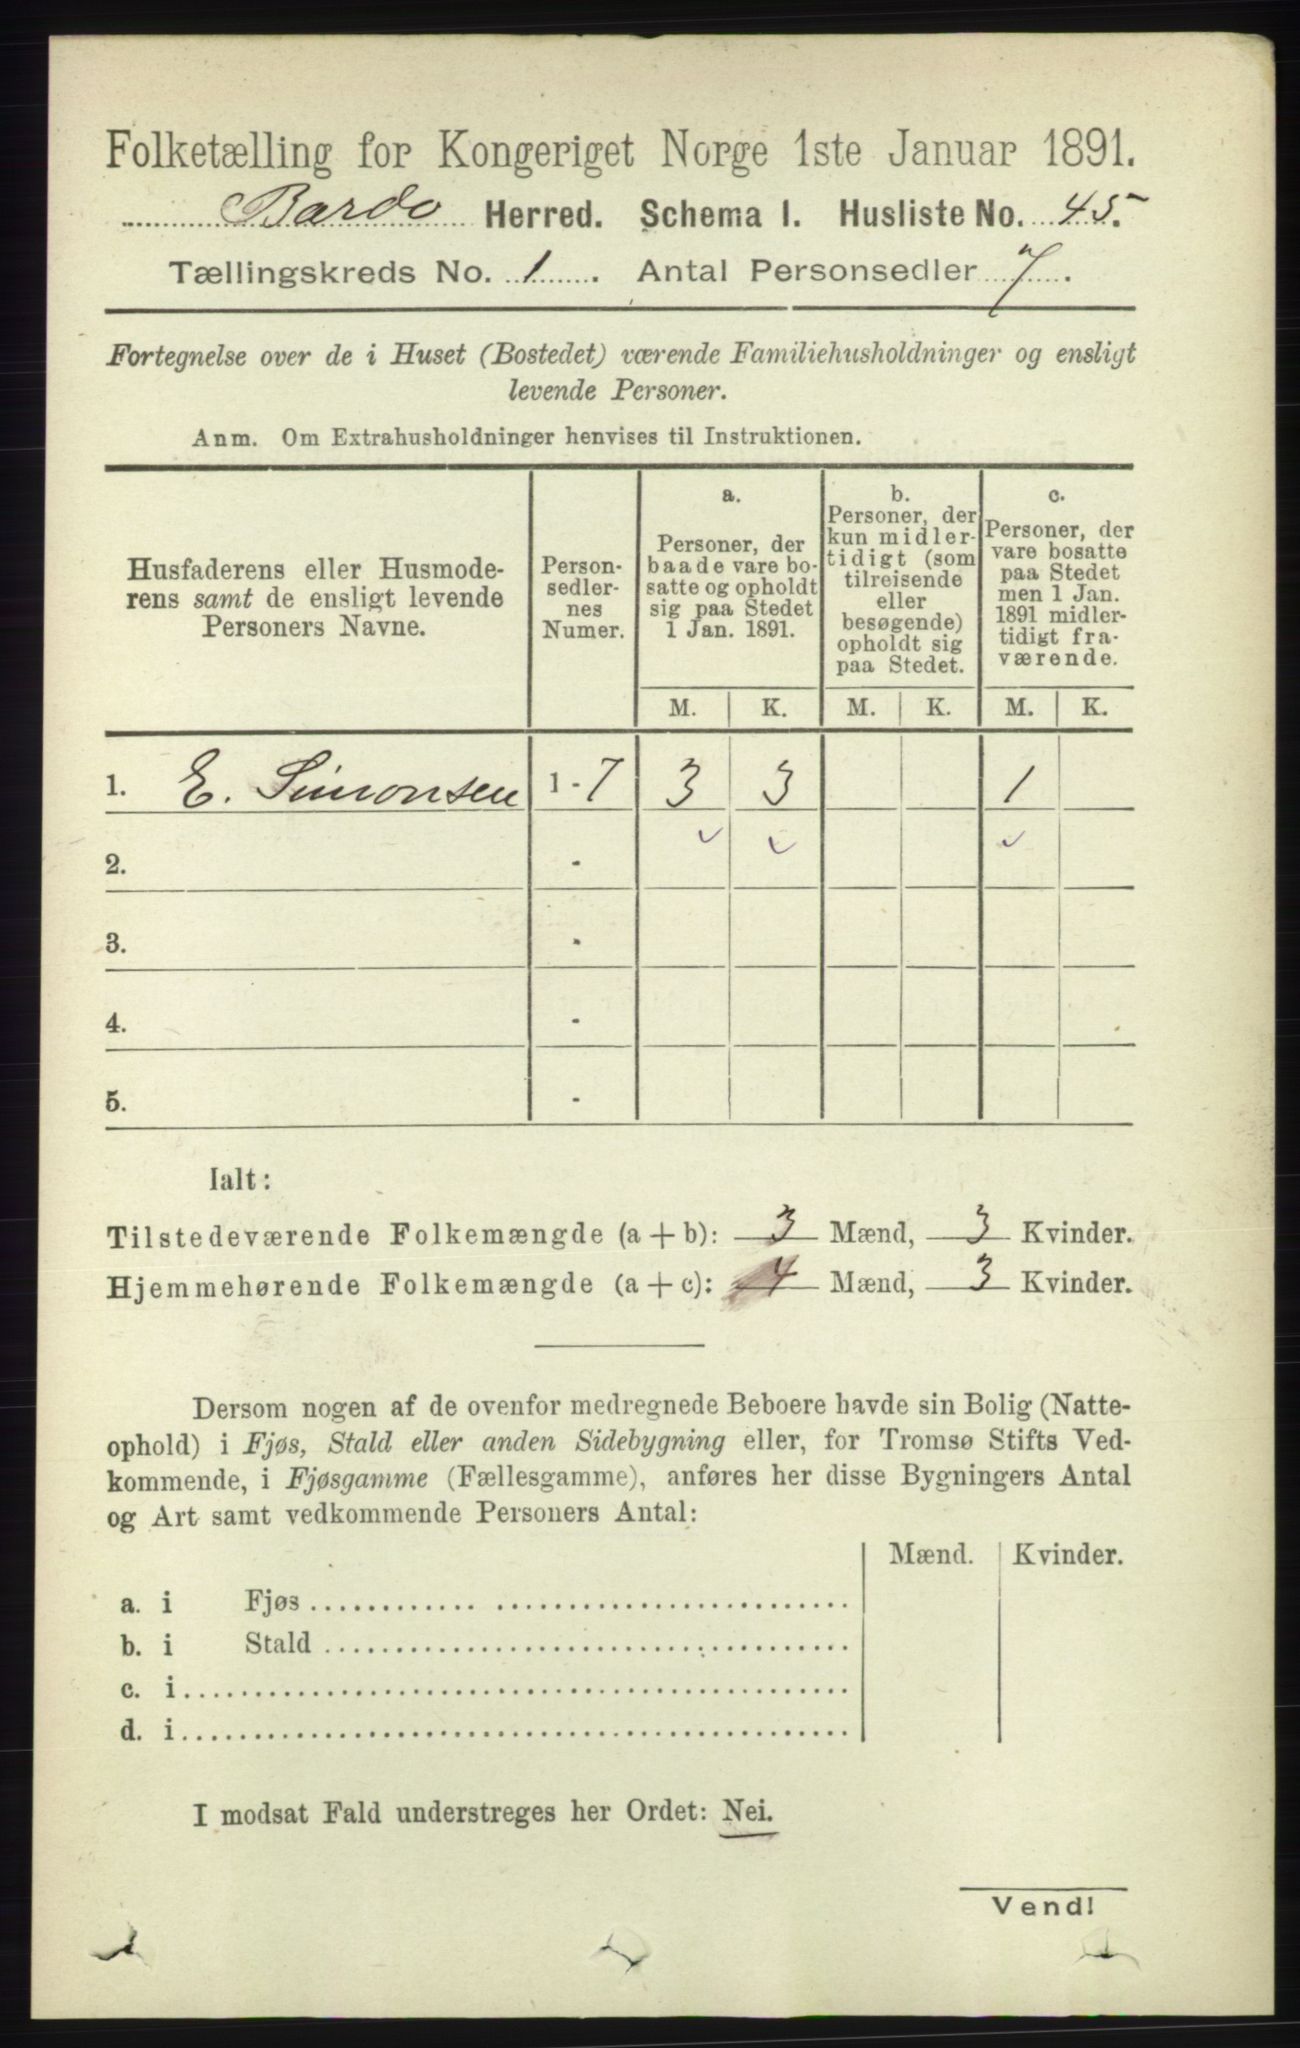 Folketælling for Kongeriget Norge 1ste Januar 1891.
Bardo Herred. Schema I. Husliste No. 45.
Tællingskreds No. 1. Antal Personsedler 7.
Fortegnelse over de i Huset (Bostedet) værende Familiehusholdninger og ensligt
levende Personer.
Anm. Om Extrahusholdninger henvises til Instruktionen.
Husfaderens eller Husmode-
rens samt de ensligt levende
Personers Navne.
Person-
sedler-
nes
Numer.
a.
Personer, der
baade vare bo-
satte og opholdt
sig paa Stedet
1 Jan. 1891.
b.
Personer, der
kun midler-
tidigt (som
tilreisende
eller
besøgende)
opholdt sig
paa Stedet.
c.
Personer, der
vare bosatte
paa Stedet
men 1 Jan.
1891 midler-
tidigt fra-
værende.
M. K. M. K. M. K.
1. E. Simonsen 1 - 7 3 3 1
2. -
3. -
4. -
5. -
Ialt:
Tilstedeværende Folkemængde (a + b): 3 Mænd, 3 Kvinder.
Hjemmehørende Folkemængde (a + c): 4 Mænd, 3 Kvinder.
Dersom nogen af de ovenfor medregnede Beboere havde sin Bolig (Natte-
ophold) i Fjøs, Stald eller anden Sidebygning eller, for Tromsø Stifts Ved-
kommende, i Fjøsgamme (Fællesgamme), anføres her disse Bygningers Antal
og Art samt vedkommende Personers Antal:
Mænd. Kvinder.
a. i Fjøs
b. i Stald
c. i
d. i
I modsat Fald understreges her Ordet: Nei.
Vend!